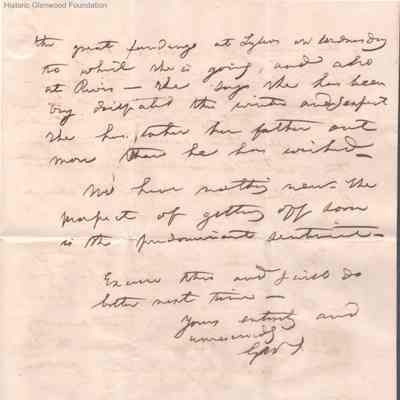 Historic Glenwood Foundation
the great fundings at Tylers on Wednesday
to which she is going, and also
at Rives — She says she has been
very dissipated this winter and I expect
She has taken her father out
more than he has wished —
We have nothing new. The
prospect of getting off soon
is the predominant sentiment —
Excuse this and I will do
better next time —
Yours entirely and
unreservedly